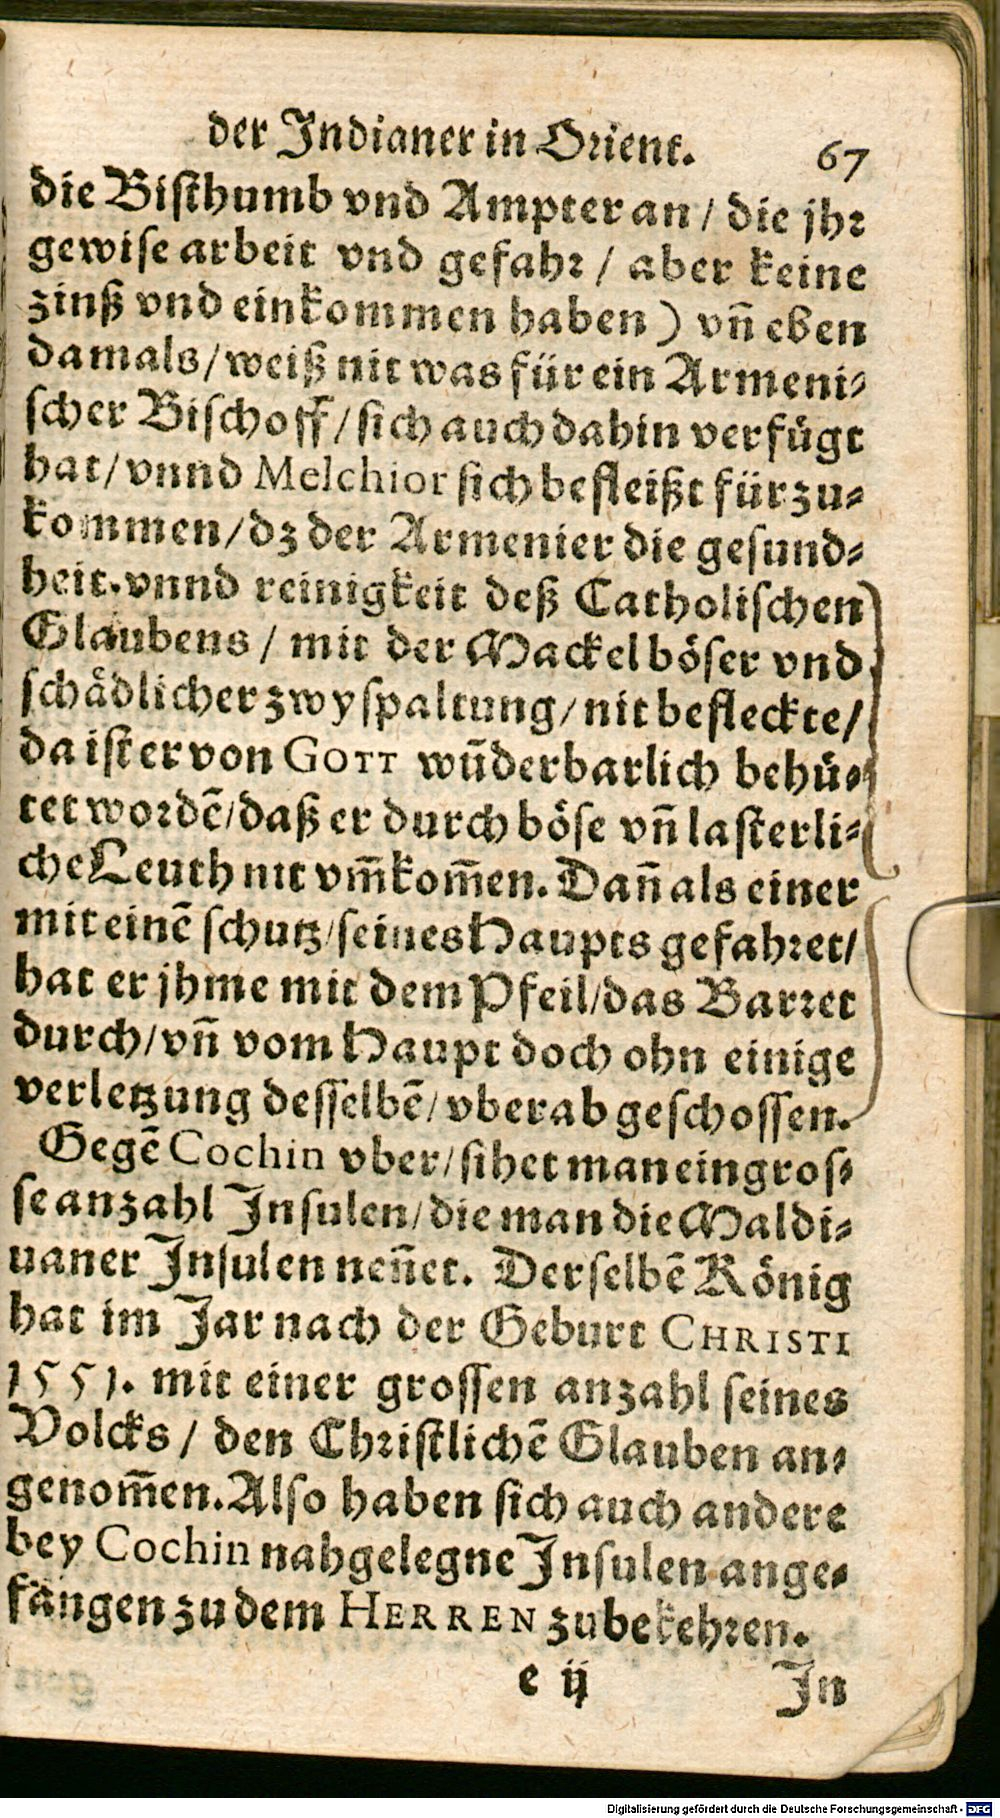 der Indianer in Orient. 67
die Bisthumb vnd Ampter an / die jhr
gewise arbeit vnd gefahr / aber keine
zinß vnd einkommen haben ) vn̄ eben
damals / weiß nit was für ein Armeni⸗
scher Bischoff / sich auch dahin verfügt
hat / vnnd Melchior sich befleißt fürzu⸗
kommen / dz der Armenier die gesund⸗
heit. vnnd reinigkeit deß Catholischen
Glaubens / mit der Mackel böser vnd
schådlicher zwyspaltung / nit befleckte /
da ist er von GOTT wūderbarlich behü⸗
tet wordē / daß er durch böse vn̄ lasterli⸗
che Leuth nit vm̄kom̄en. Dan̄ als einer
mit einē schutz / seines Haupts gefahret /
hat er jhme mit dem Pfeil / das Barret
durch / vn̄ vom Haupt doch ohn einige
verletzung desselbē / vberab geschossen.
Gegē Cochin vber / sihet man ein gros⸗
se anzahl Insulen / die man die Maldi⸗
uaner Insulen nen̄et. Derselbē König
hat im Jar nach der Geburt CHRISTI
1551. mit einer grossen anzahl seines
Volcks / den Christlichē Glauben an⸗
genom̄en. Also haben sich auch andere
bey Cochin nahgelegne Insulen ange⸗
fangen zu dem HERREN zubekehren.
e ij In
Digitalisierung gefördert durch die Deutsche Forschungsgemeinschaft - DFG